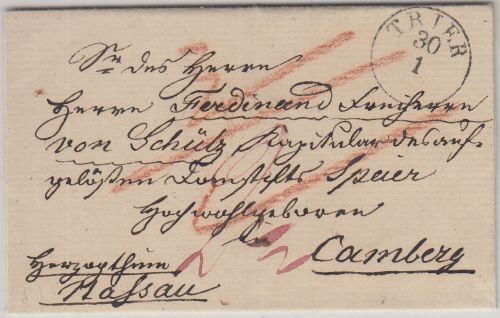 TRIER
30
1
Sr. des Herrn
Herrn Ferdinand Freiherrn
von Schütz Kapitular des auf-
gelößten Domstifts Speier
Hochwohlgeboren
Camberg
Herzogthum
Nassau